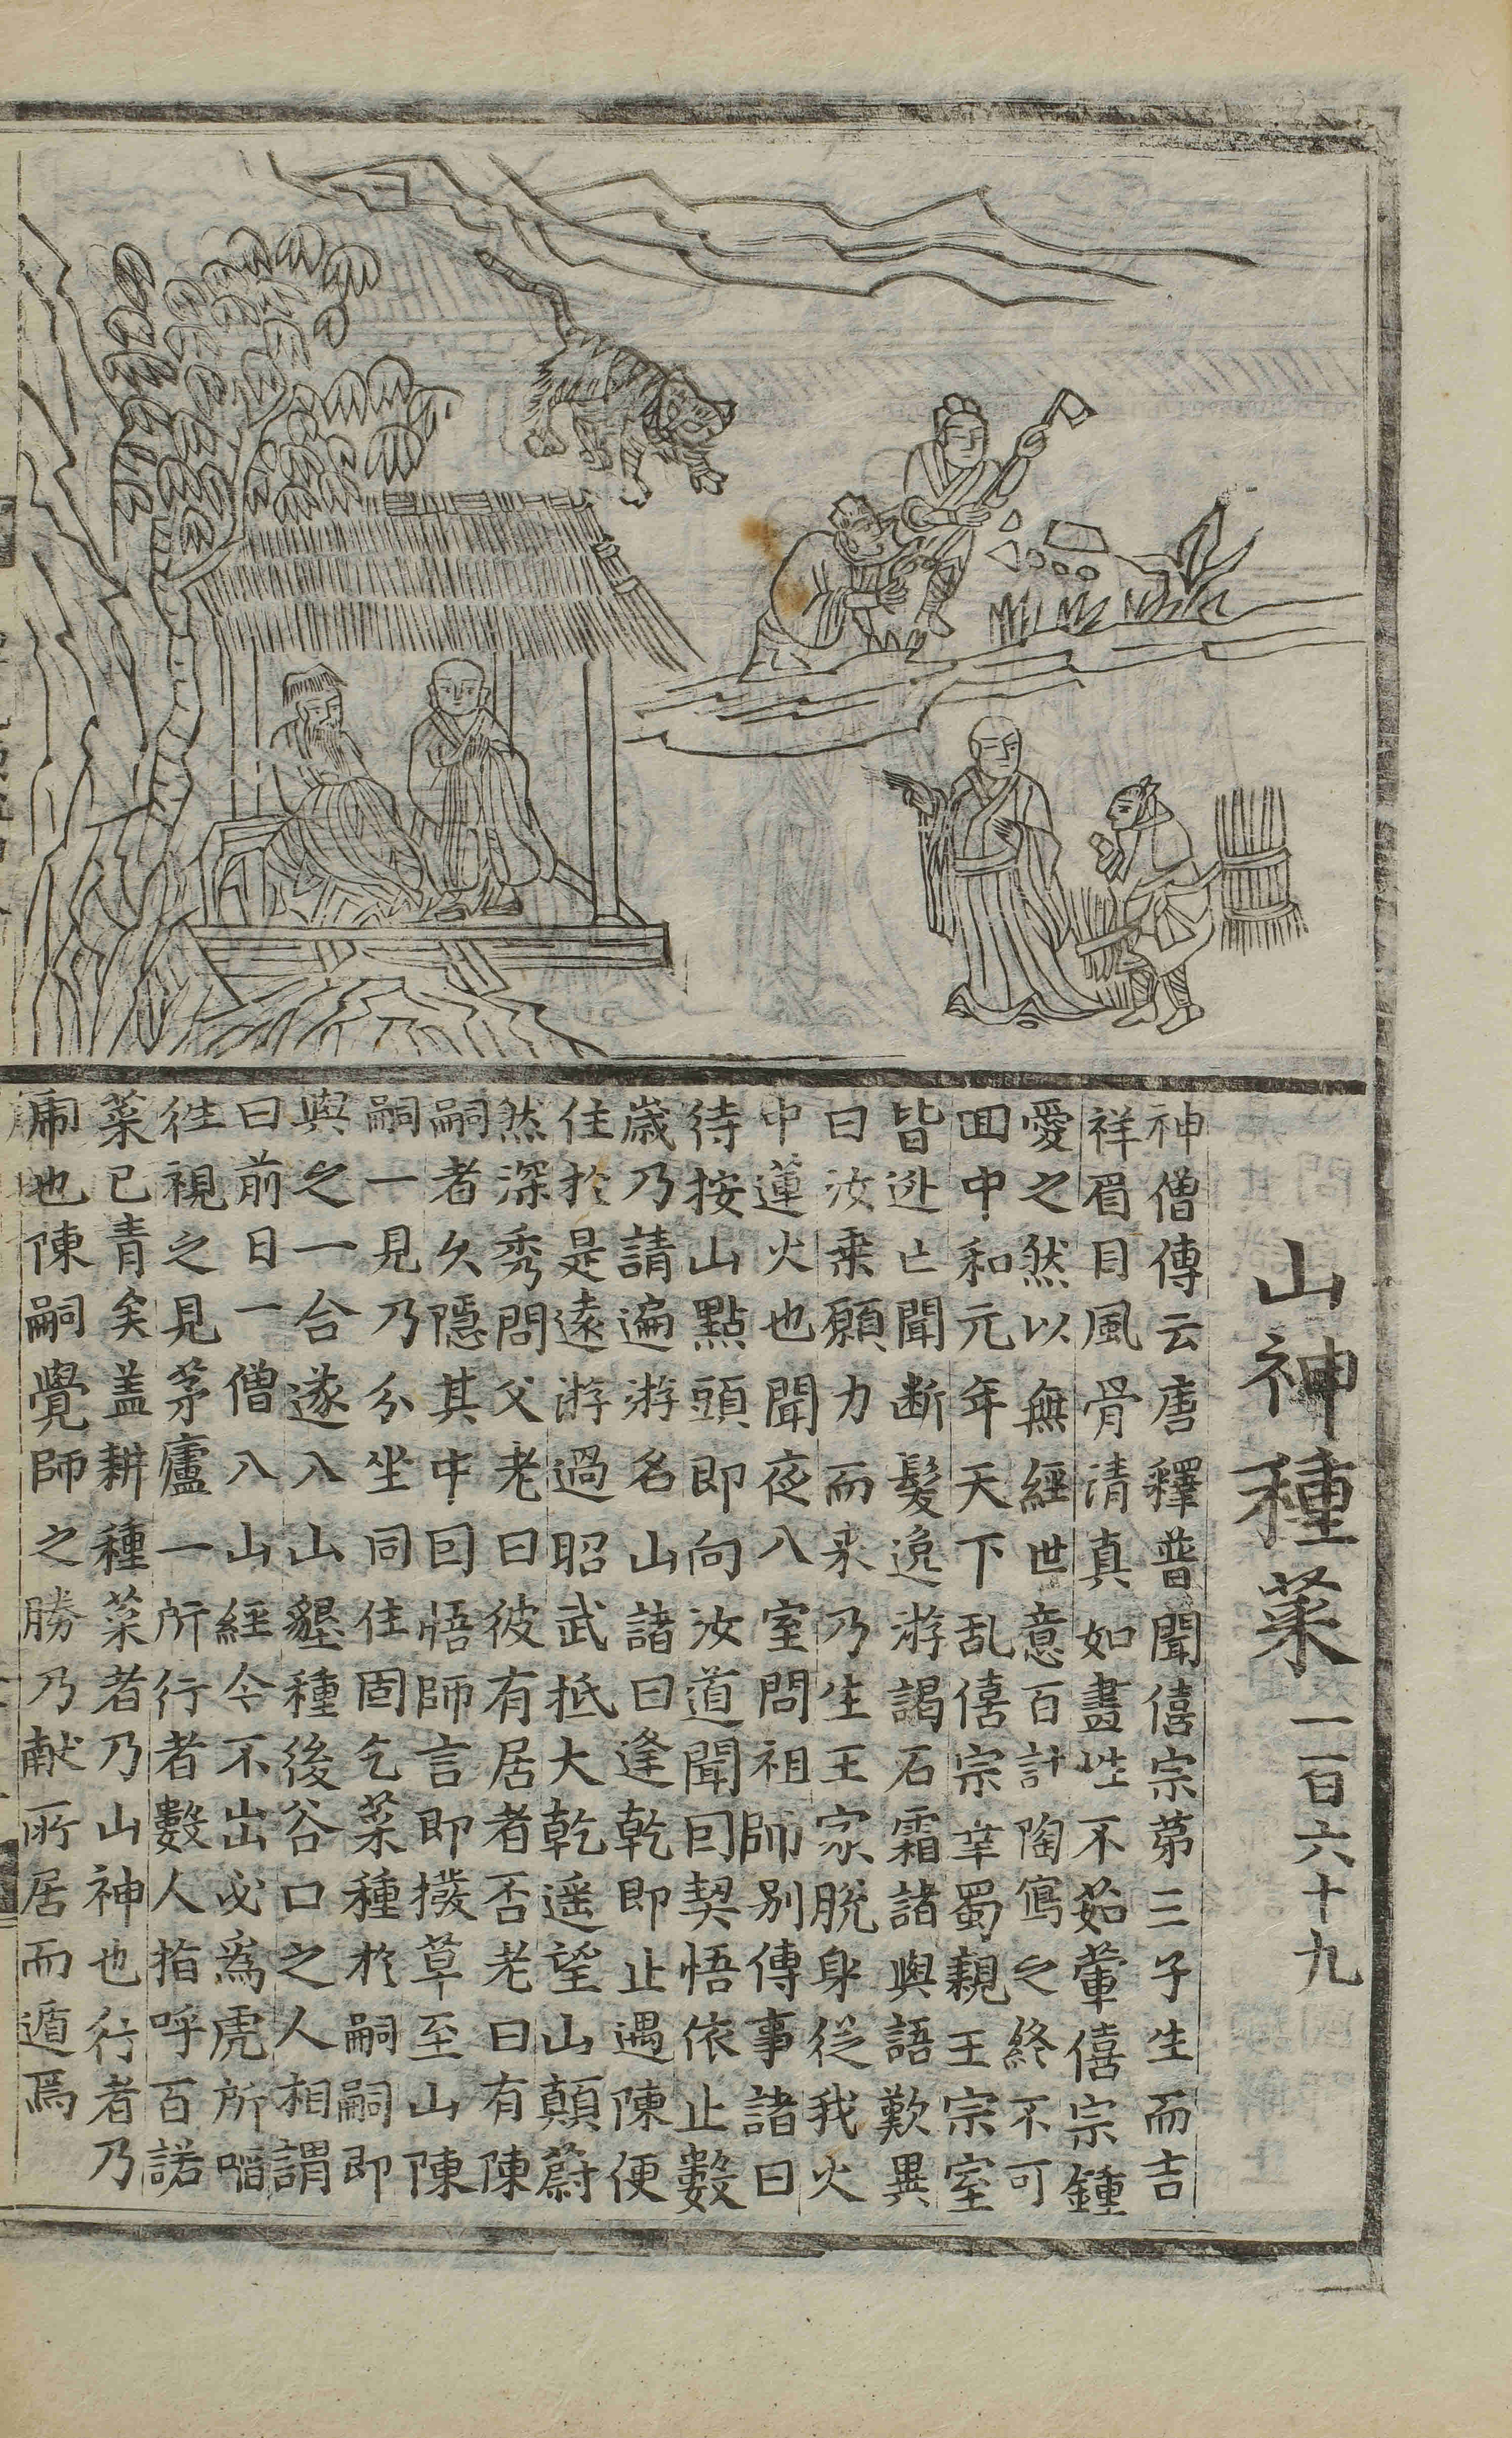 山神種菜 一百六十九
神僧傳云唐釋普聞僖宗第三子生而吉
祥眉目風骨清真如畫性不茹葷僖宗鍾
愛之然以無經世意百計陶寫之終不可
囬中和元年天下乱僖宗幸蜀親王宗室
皆迯亡聞断髮逸游謁石霜諸與語歎異
曰汝乗願力而来乃生王家脫身従我火
中蓮火也聞夜入室問祖師別傳事諸曰
待按山點頭即向汝道聞囙契悟依止數
歲乃請遍游名山諸曰逢乾即止遇陳便
住於是遠游過昭武抵大乾遥望山顛蔚
然深秀問父老曰彼有居者否老曰有陳
嗣者乆隱其中囙悟師言即撥草至山陳
嗣一見乃分坐同住固乞菜種於嗣嗣即
與之一合遂入山墾種後谷口之人相謂
曰前日一僧入山經今不出必為虎所啗
徃視之見茅廬一所行者數人指呼百諾
菜已青矣盖耕種菜者乃山神也行者乃
乕也陳嗣覺師之勝乃献所居而遁焉